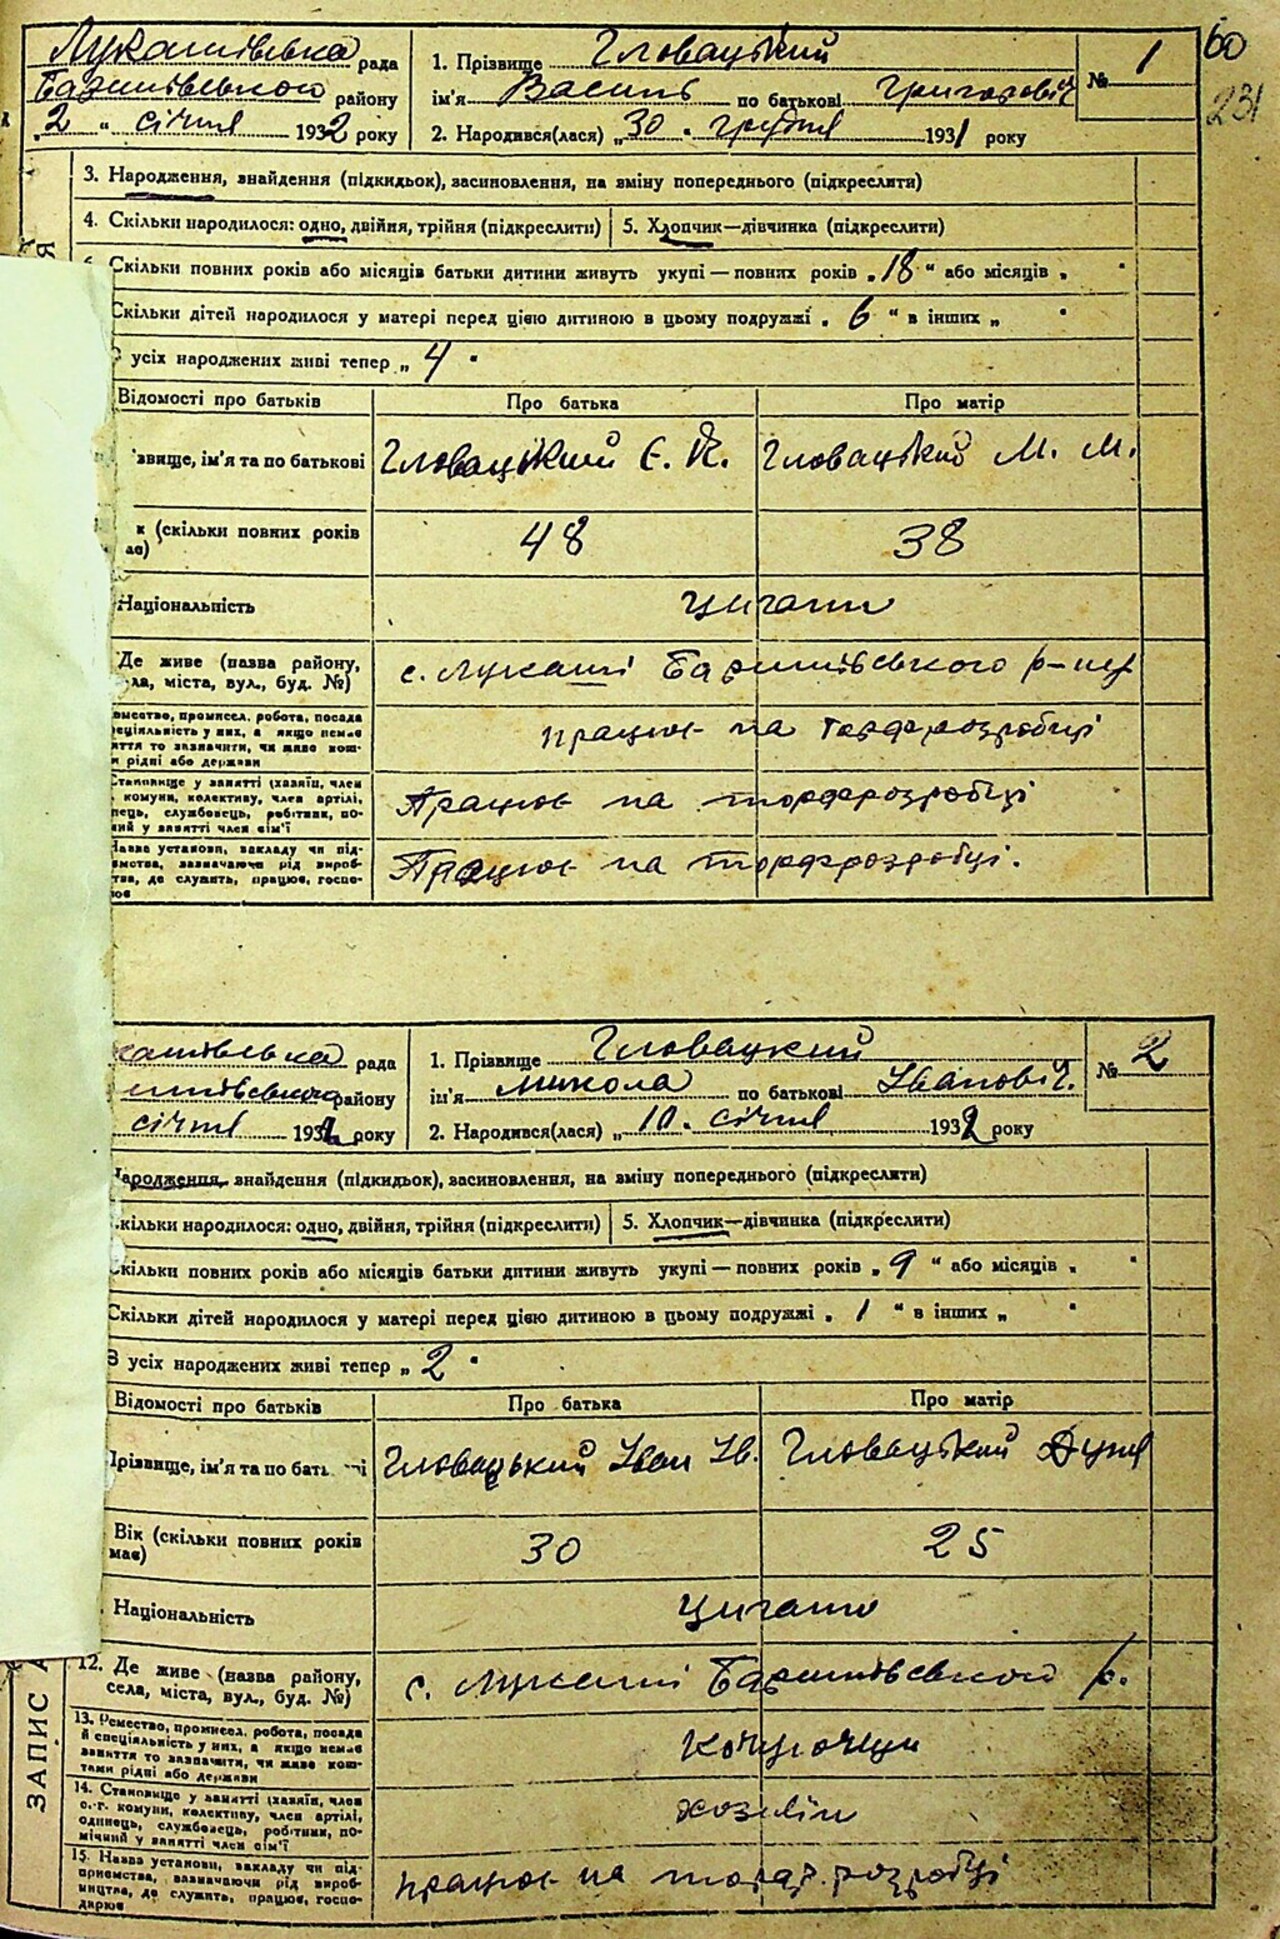 60
231
Лукашівська рада
Баришівського району
„2“ січня 1932 року
1. Прізвище Гловацький
ім'я Василь по батькові Григорович
2. Народився(лася) „30„ грудня 1931 року
№ 1
3. Народження, знайдення (підкидьок), засиновлення, на зміну попереднього (підкреслити)
4. Скільки народилося: одно, двійня, трійня (підкреслити)
5. Хлопчик—дівчинка (підкреслити)
Скільки повних років або місяців батьки дитини живуть укупі — повних років „18“ або місяців „ “
Скільки дітей народилося у матері перед цією дитиною в цьому подружжі „6“ в інших „ “
усіх народжених живі тепер „4“
Відомості про батьків
Про батька
Про матір
звище, ім'я та по батькові
Гловацький Є. К.
Гловацький М. М.
к (скільки повних років
ає)
48
38
Національність
Цигани
Де живе (назва району,
ла, міста, вул., буд. №)
с. Лукаші Баришівського р-ну
емество, промисел, робота, посада
еціяльність у них, а якщо немає
яття то зазначити, чи живе кош-
и рідні або держави
працює на торфрозробці
Становище у занятті (хазяїн, член
комуни, колективу, член артілі,
нець, службовець, робітник, по-
чний у занятті член сім'ї
Працює на торфрозробці
Назва установи, закладу чи під-
ємства, зазначаючи рід вироб-
тва, де служить, працює, госпо-
ює
Працює на торфрозробці.
кашівська рада
ишівського району
січня 1932 року
1. Прізвище Гловацкий
ім'я Микола по батькові Іванович.
2. Народився(лася) „10„ січня 1932 року
№ 2
Народження, знайдення (підкидьок), засиновлення, на зміну попереднього (підкреслити)
Скільки народилося: одно, двійня, трійня (підкреслити)
5. Хлопчик—дівчинка (підкреслити)
Скільки повних років або місяців батьки дитини живуть укупі — повних років „9“ або місяців „ “
Скільки дітей народилося у матері перед цією дитиною в цьому подружжі „1“ в інших „ “
З усіх народжених живі тепер „2“
Відомості про батьків
Про батька
Про матір
Прізвище, ім'я та по бать і
Гловацький Іван Ів.
Гловацький
Вік (скільки повних років
має)
30
25
Національність
Цигани
12. Де живе (назва району,
села, міста, вул., буд. №)
с. Лукаші Баришівського р.
13. Ремество, промисел, робота, посада
й спеціяльність у них, а якщо немає
заняття то зазначити, чи живе кош-
тами рідні або держави
14. Становище у занятті (хазяїн, член
с.-г. комуни, колективу, член артілі,
одинець, службовець, робітник, по-
мічний у занятті член сім'ї
хозяїн
15. Назва установи, закладу чи під-
приємства, зазначаючи рід вироб-
ництва, де служить, працює, госпо-
дарює
працює на торф. розробці
ЗАПИС А